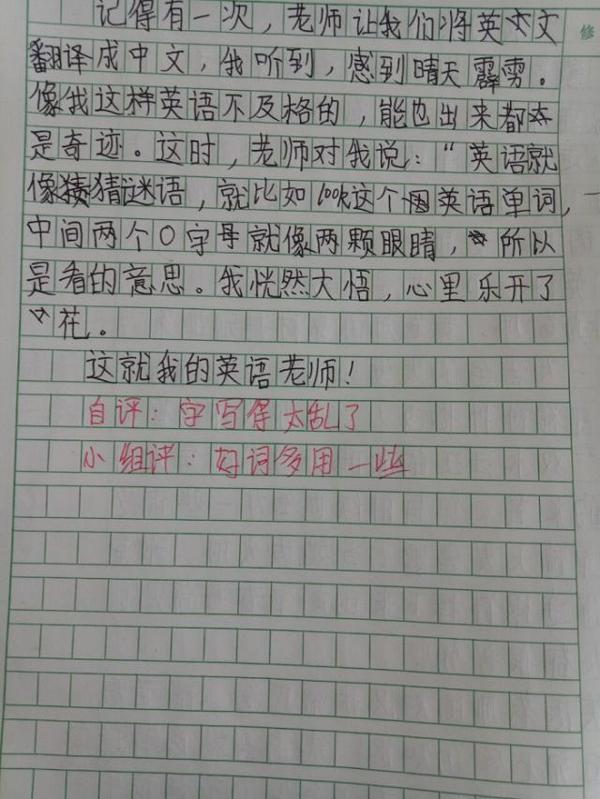 记得有一次，老师让我们将英文
翻译成中文，我听到，感到晴天霹雳。
像我这样英语不及格的，能出来都
是奇迹。这时，老师对我说：“英语就
像猜谜语，就比如look这个英语单词，
中间两个O字母就像两颗眼睛，所以
是看的意思。我恍然大悟，心里乐开了
花。
这就我的英语老师！
自评：字写得太乱了
小组评：好词多用一些
修